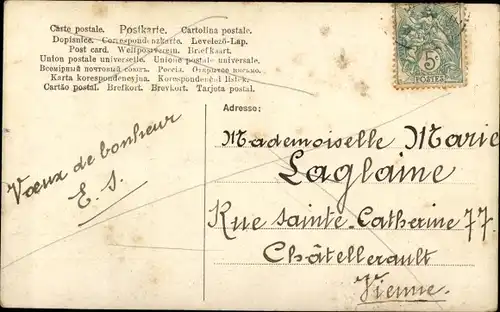 Carte postale. Postkarte. Cartolina postale.
Dopisnice. Correspondenzkarte. Levelező-Lap.
Post card. Weltpostverein. Briefkaart.
Union postale universelle. Unione postale universale.
Всемірный почтовый союзъ. Россія. Открытое письмо.
Karta korespondencyjna. Korespondenční lístek.
Cartão postal. Brefkort. Brevkort. Tarjeta postal.
5
POSTES
Adresse:
Mademoiselle Marie
Laglaine
Rue Sainte-Catherine 77.
Châtellerault
Vienne.
Vœux de bonheur
E. S.